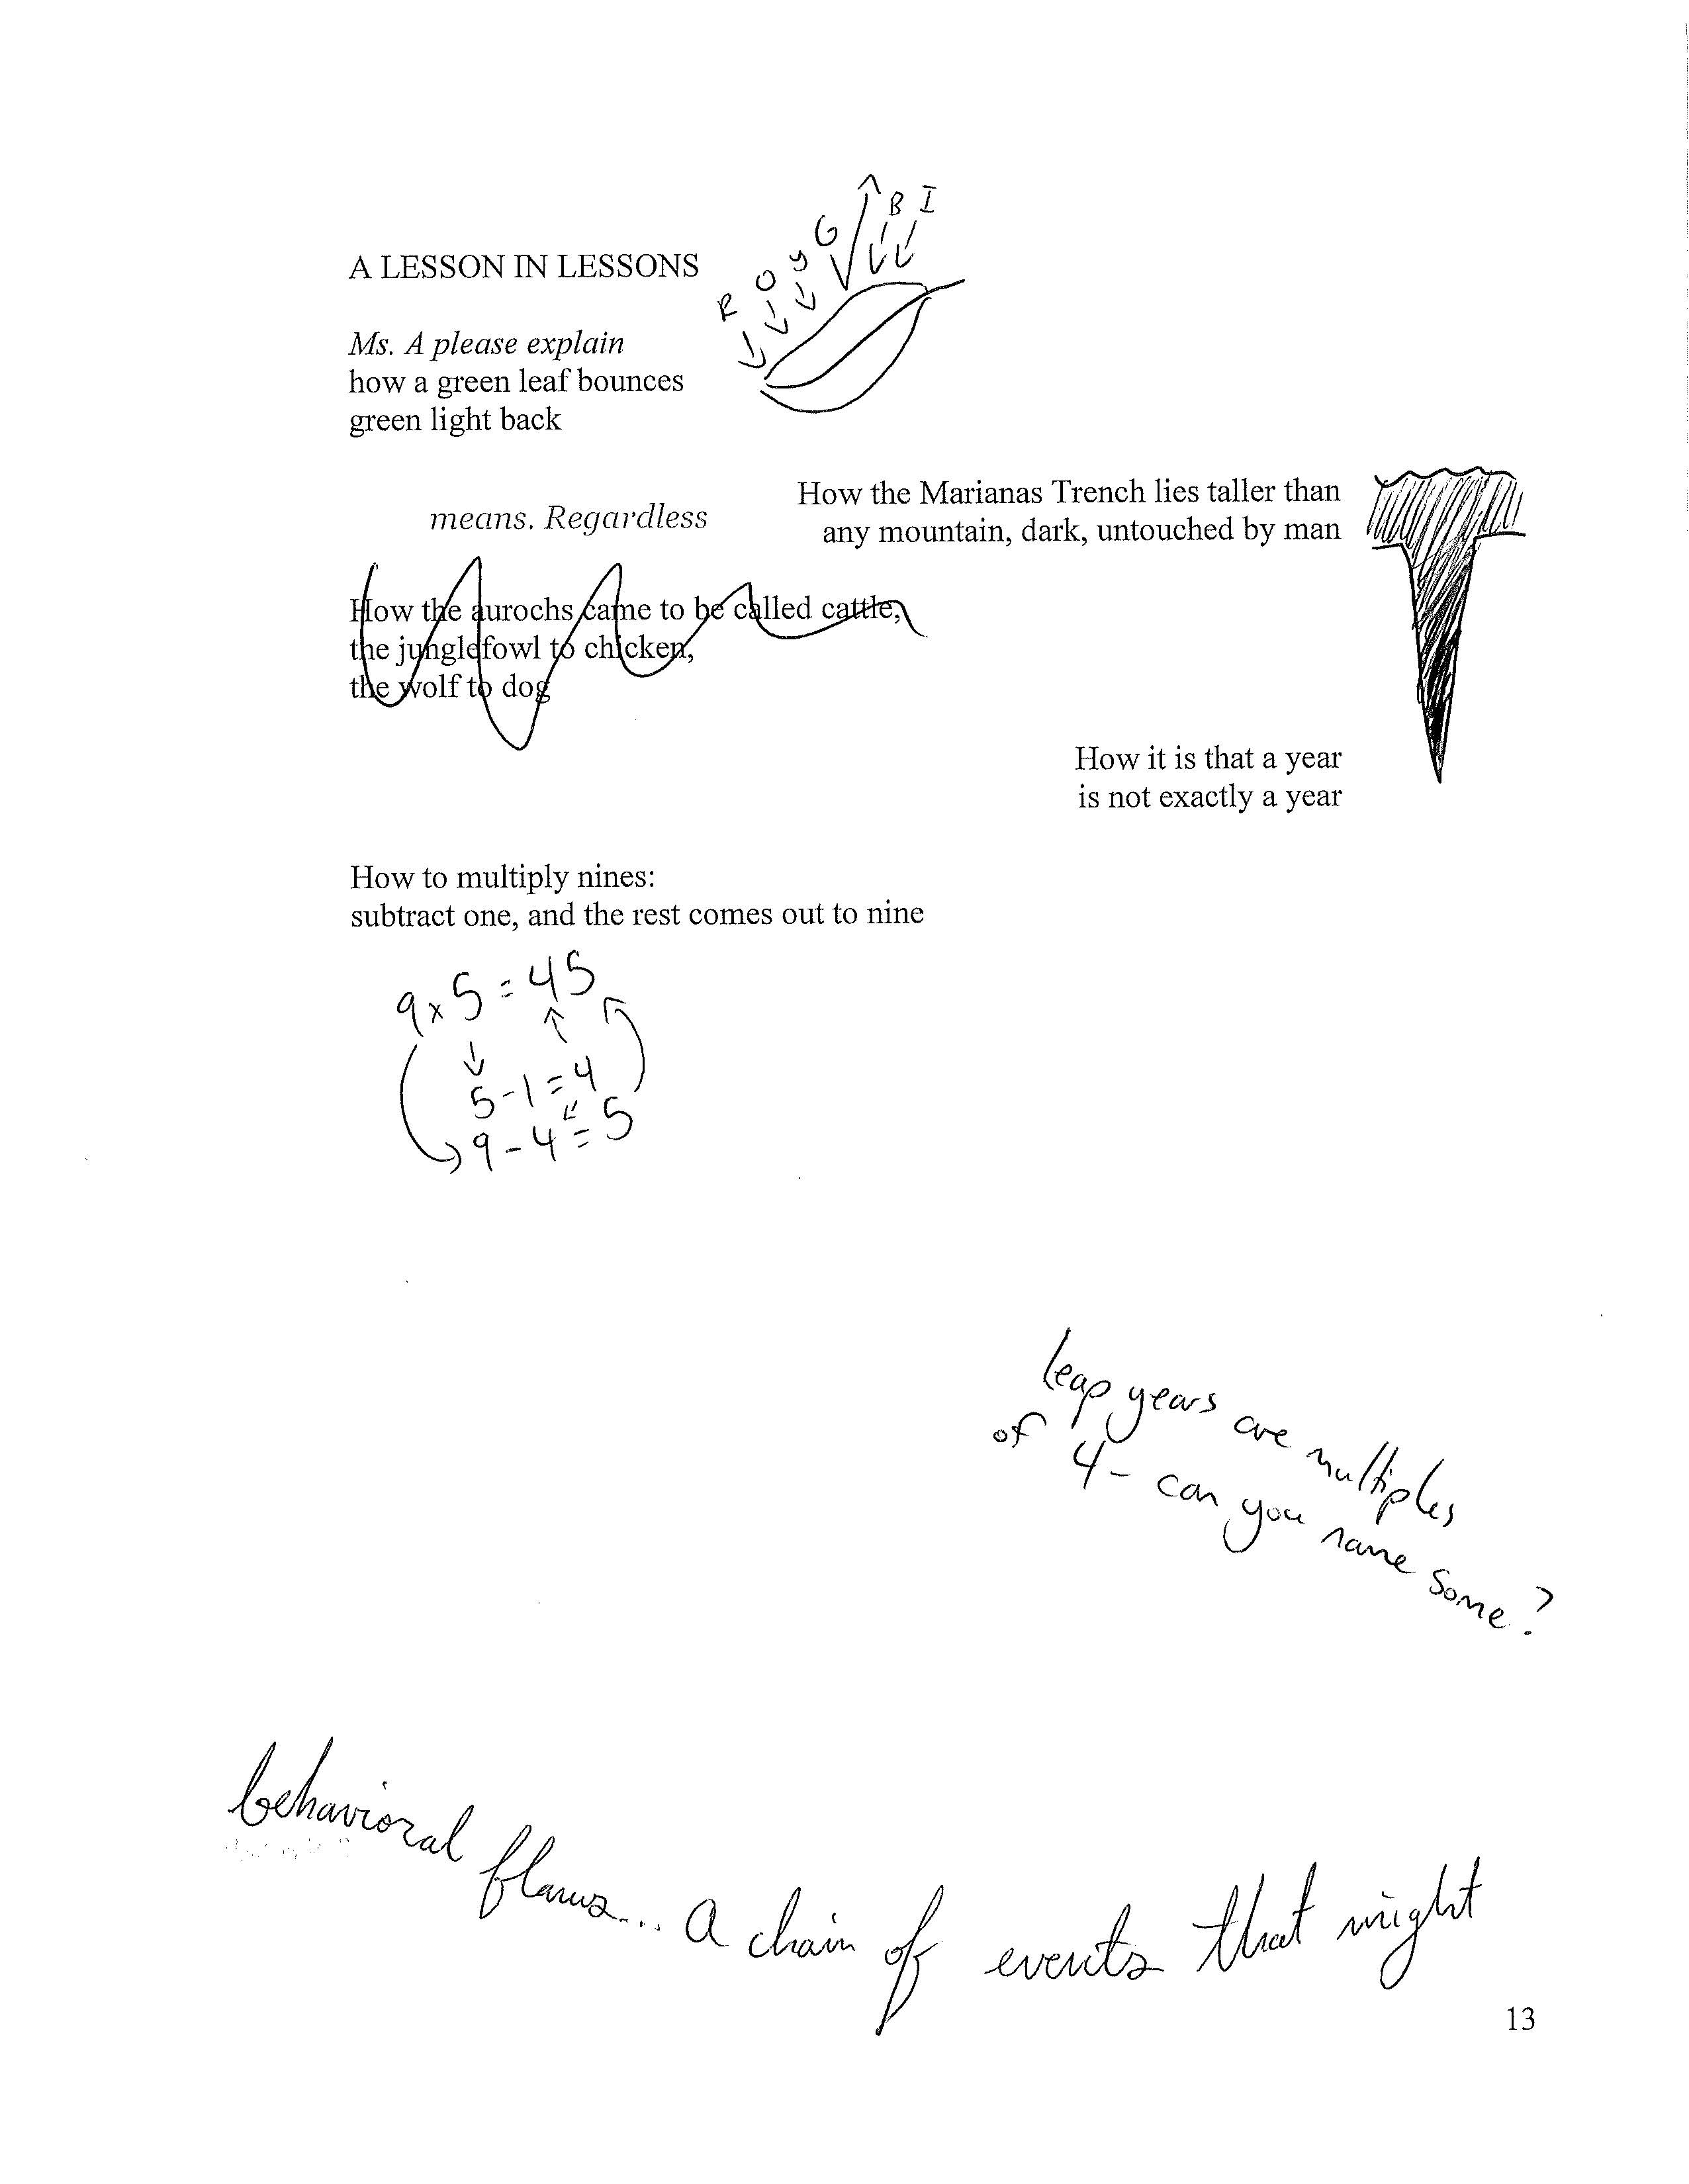 A LESSON IN LESSONS
R O Y G B I
Ms. A please explain
how a green leaf bounces
green light back
How the Marianas Trench lies taller than
any mountain, dark, untouched by man
means. Regardless
How the aurochs came to be called cattle,
the junglefowl to chicken,
the wolf to dog
How it is that a year
is not exactly a year
How to multiply nines:
subtract one, and the rest comes out to nine
9x5=45
5-1=4
9-4=5
leap years are multiples
of 4- can you name some?
behavioral flaws... a chain of events that might
13